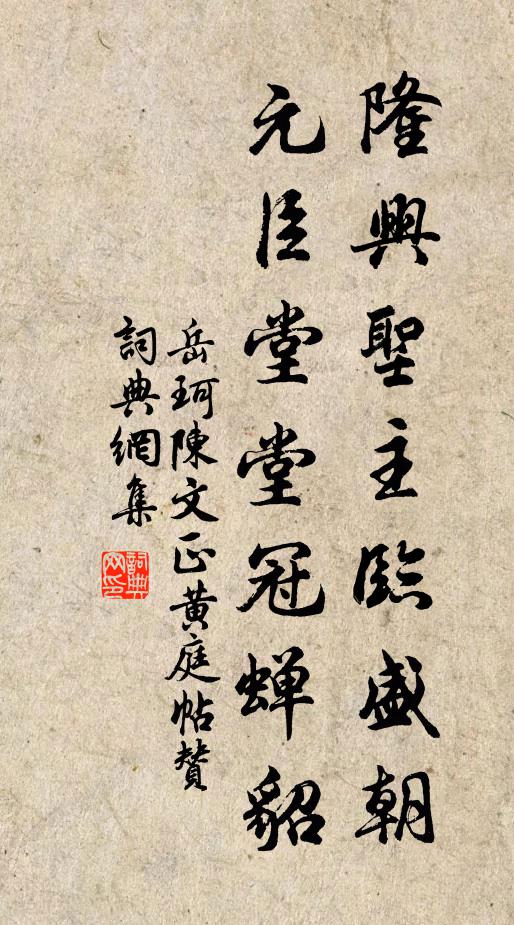 隆興聖主臨盛朝
元臣堂堂冠蟬貂
岳珂陳文正黃庭帖贊
詞典網集
詞典網印